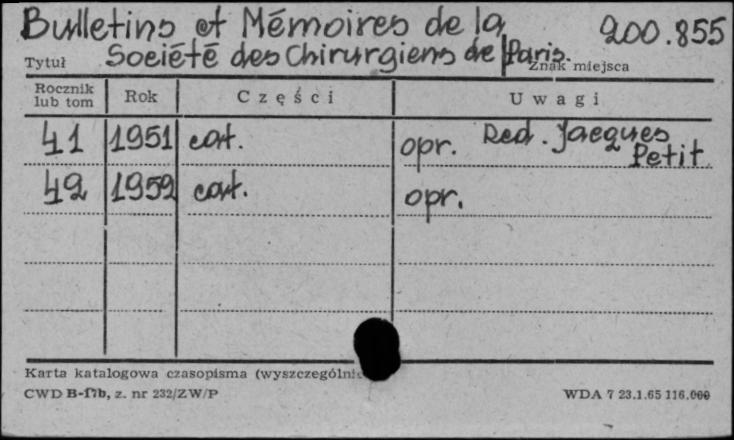 Bulletins et Mémoires de la 200.855
Tytuł Société des Chirurgiens de Paris. Znak miejsca
Rocznik lub tom Rok Części Uwagi
41 1951 cat. opr. Red. Jacques Petit
42 1952 cat. opr.
Karta katalogowa czasopisma
CWD B-17b, z. nr 232/ZW/P WDA 7 23.1.65 116.000